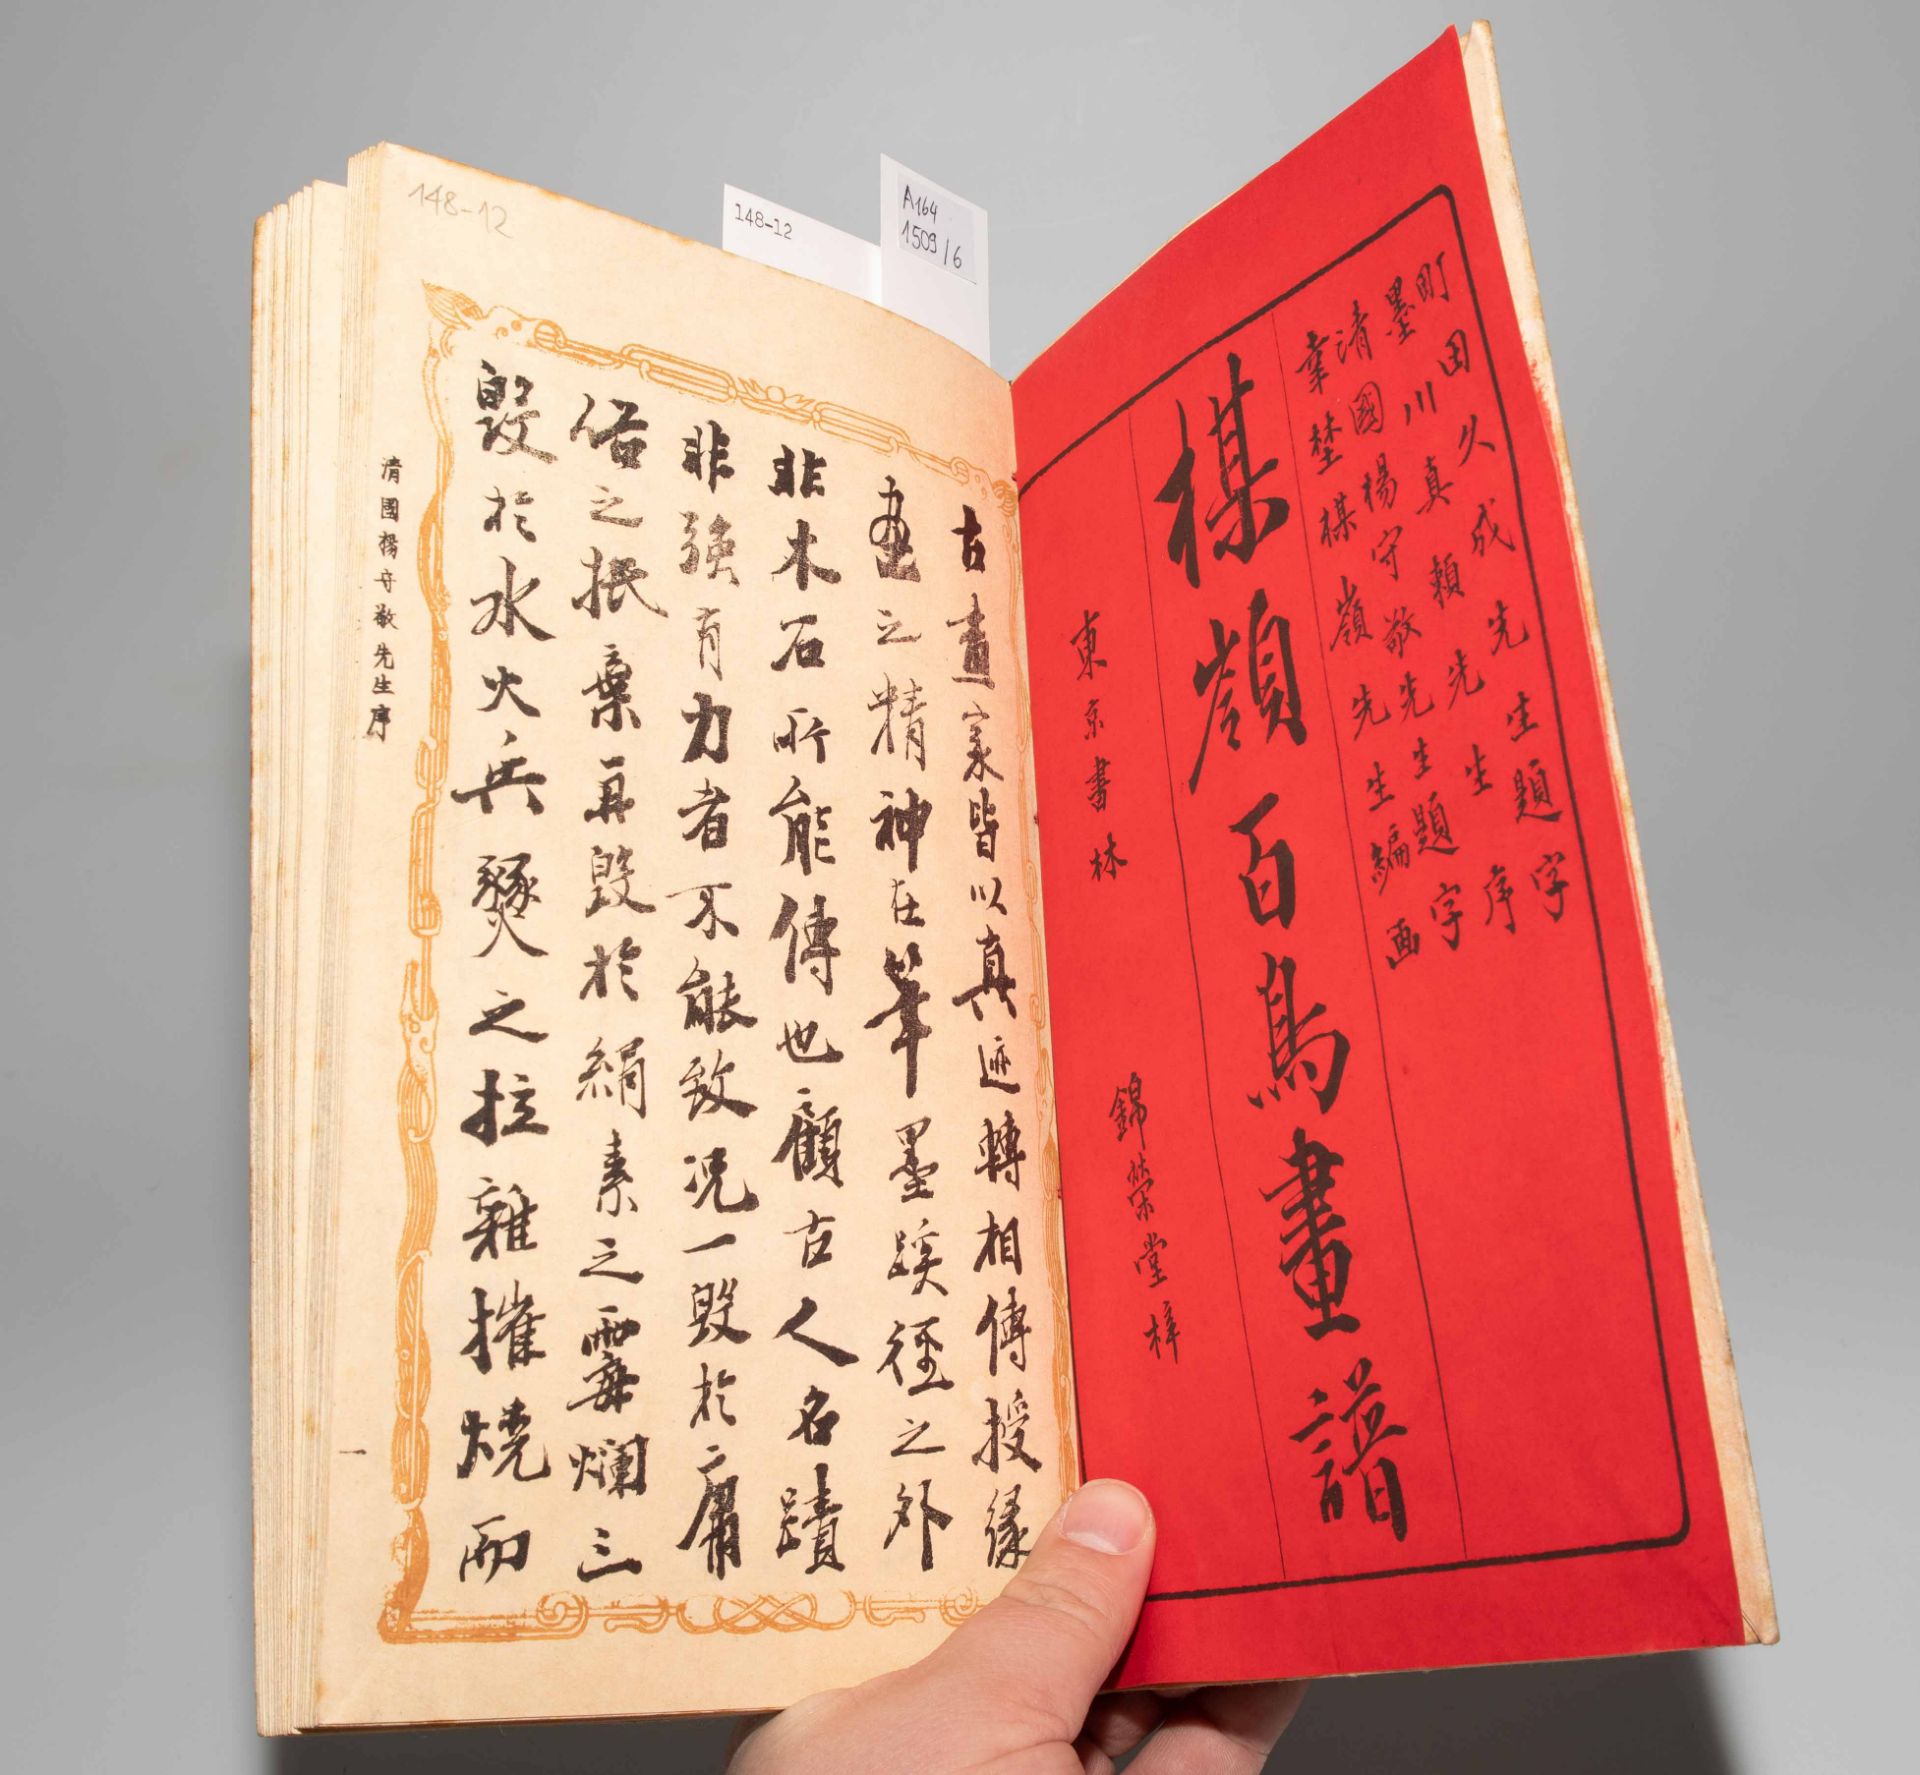 町田久成先生題字
墨川真頼先生序
清國楊守敬先生題字
幸埜楳嶺先生編画
楳嶺百鳥畫譜
東京書林 錦榮堂梓
古畫家皆以真迹轉相傳授緣
畫之精神在筆墨蹊徑之外
非木石所能傳也顧古人名蹟
非強有力者不能致況一毀於庸
俗之抵棄再毀於絹素之霉爛三
毀於水火兵燹之拉雜摧燒而
清國楊守敬先生序
一
148-12
148-12
A164
1509/6